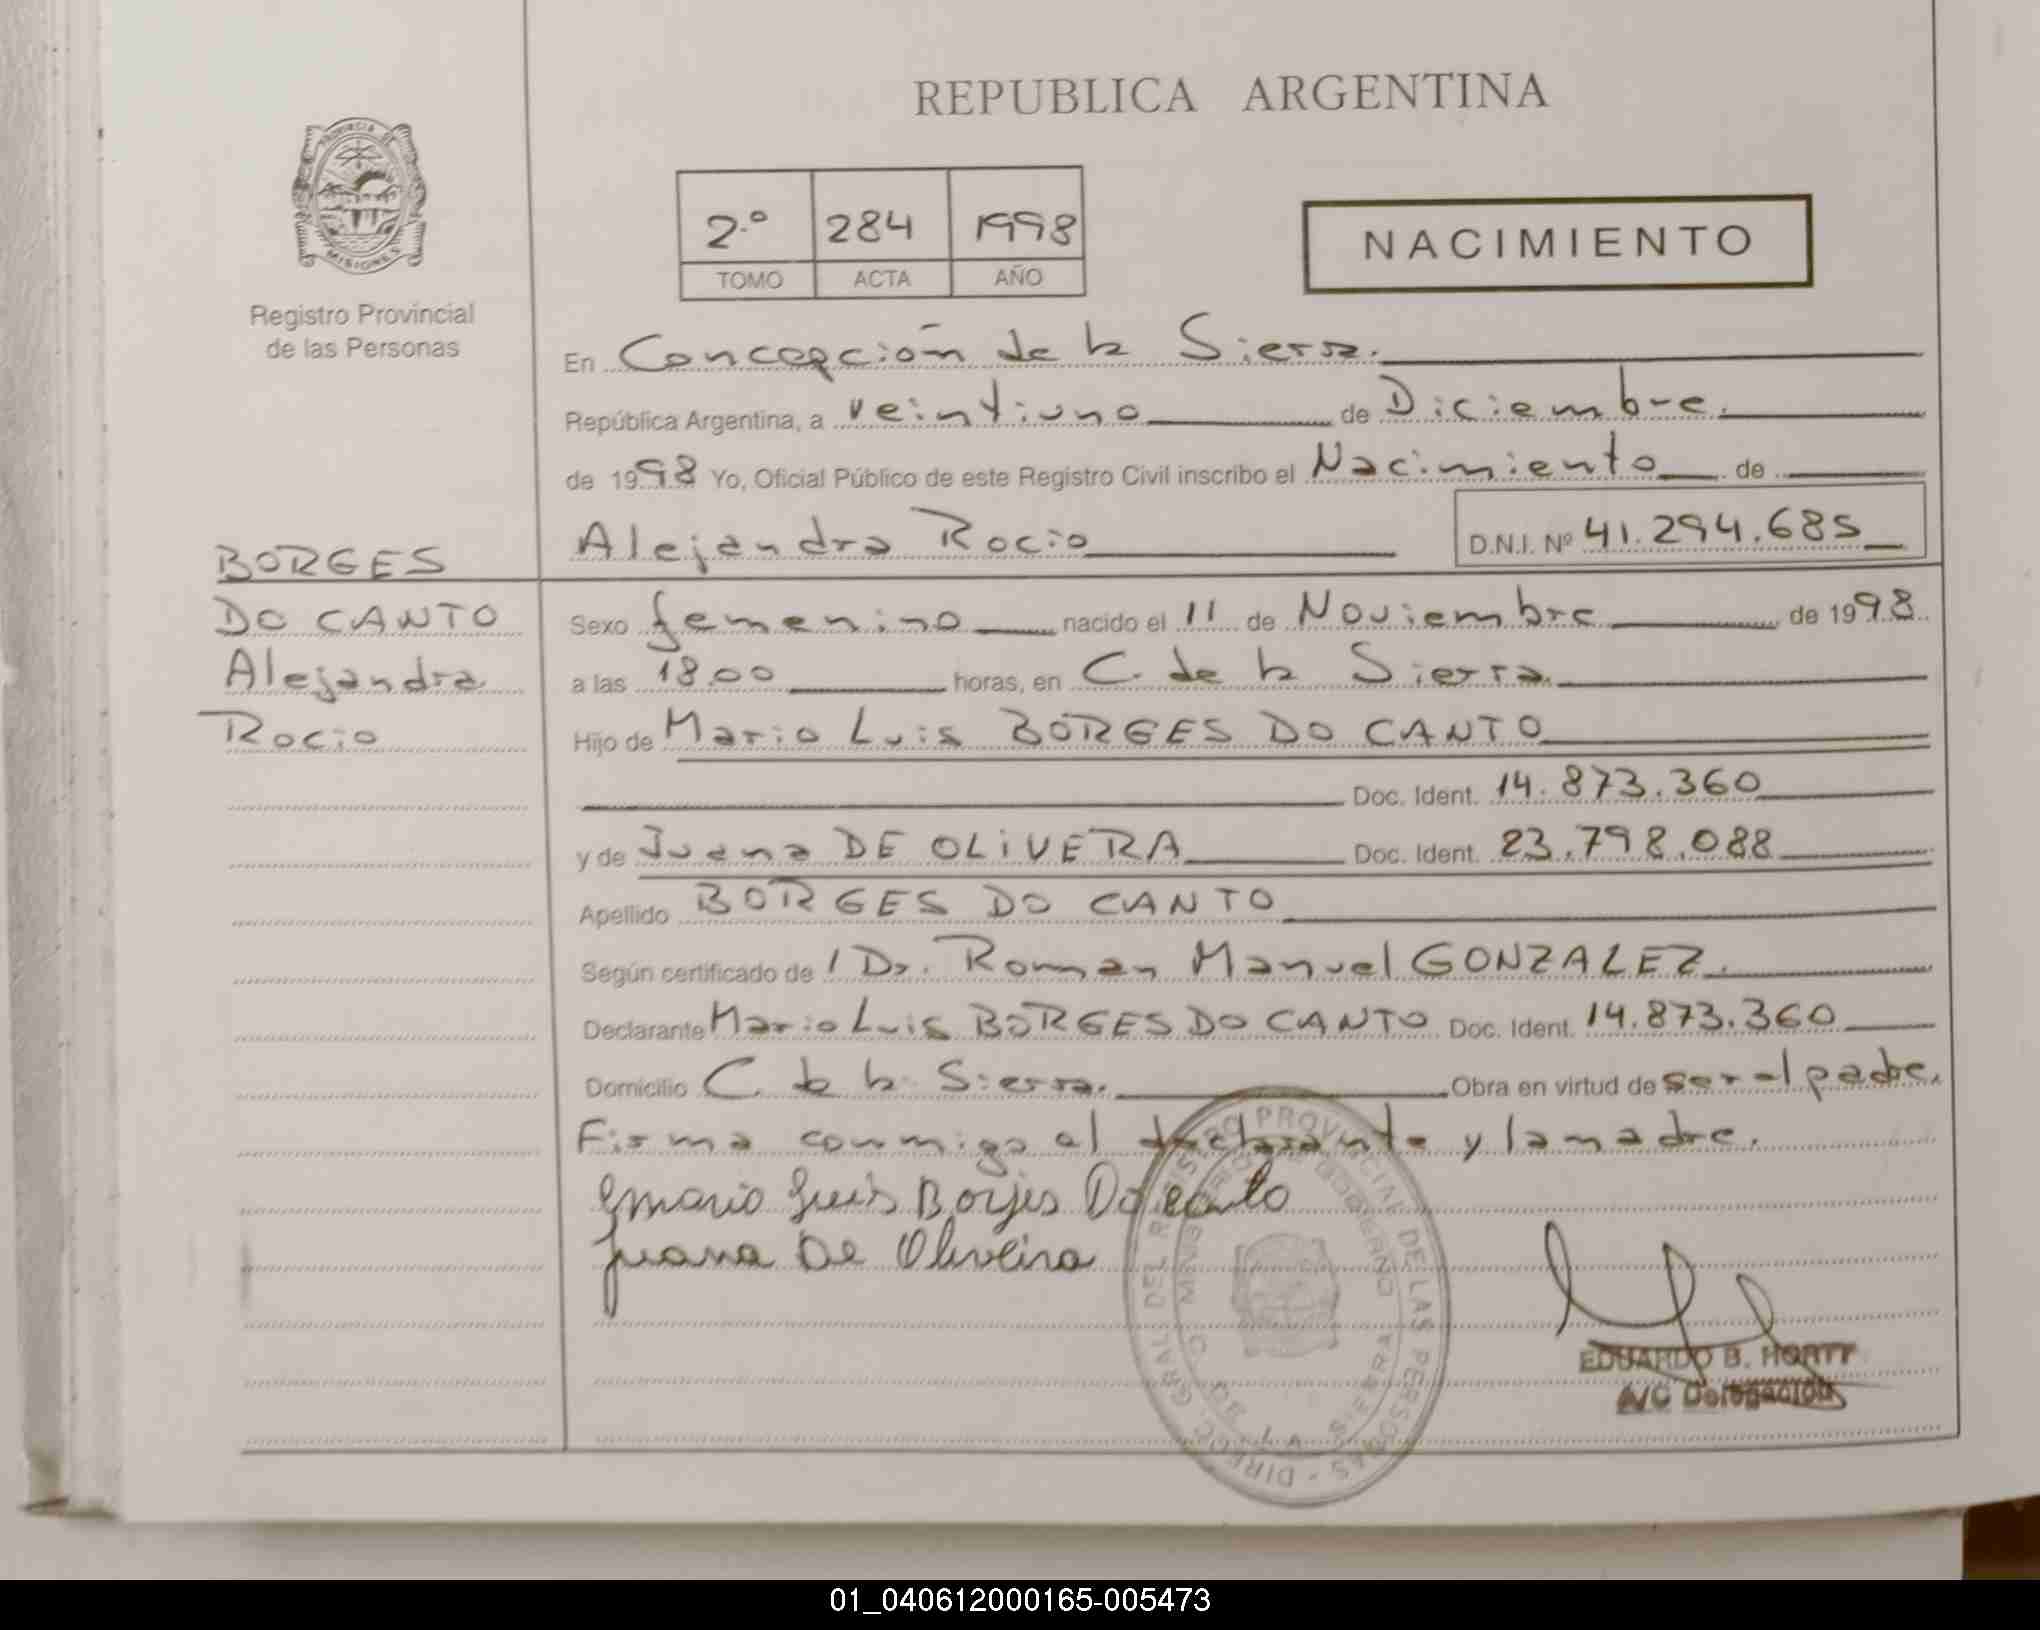 REPUBLICA ARGENTINA
PROVINCIA DE MISIONES
Registro Provincial
de las Personas
2.º 284 1998
TOMO ACTA AÑO
NACIMIENTO
En Concepción de la Sierra.
República Argentina, a veintiuno de Diciembre.
de 1998 Yo, Oficial Público de este Registro Civil inscribo el Nacimiento de
Alejandra Rocio D.N.I. Nº 41.294.685
BORGES
DO CANTO
Alejandra
Rocio
Sexo femenino nacido el 11 de Noviembre de 1998
a las 18.00 horas, en C. de la Sierra.
Hijo de Mario Luis BORGES DO CANTO
Doc. Ident. 14.873.360
y de Juana DE OLIVERA Doc. Ident. 23.798.088
Apellido BORGES DO CANTO
Según certificado de / Dr. Roman Manuel GONZALEZ.
Declarante Mario Luis BORGES DO CANTO Doc. Ident. 14.873.360
Domicilio C. de la Sierra. Obra en virtud de ser el padre.
Firma conmigo el declarante y la madre.
Mario Luis Borjes Do canto
Juana De Oliveira
DIRECC. GRAL. DEL REGISTRO PROVINCIAL DE LAS PERSONAS
MINISTERIO DE GOBIERNO
C. DE LA SIERRA
EDUARDO B. HORTT
A/C Delegación
01_040612000165-005473